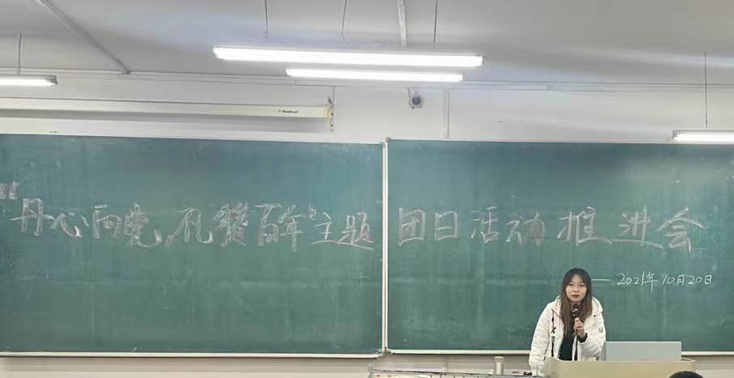 “丹心向党,礼赞百年”主题 团日活动推进会
— 2021年10月20日